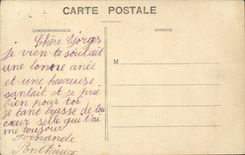 CARTE POSTALE
CORRESPONDANCE
ADRESSE
Chère Gorges
Je vien te soulait
une bonne anée
et une heureuse
santait et je prie
bien pour toi
je tant brasse de bon
cœur selle que t'ai
me toujour
Fernande